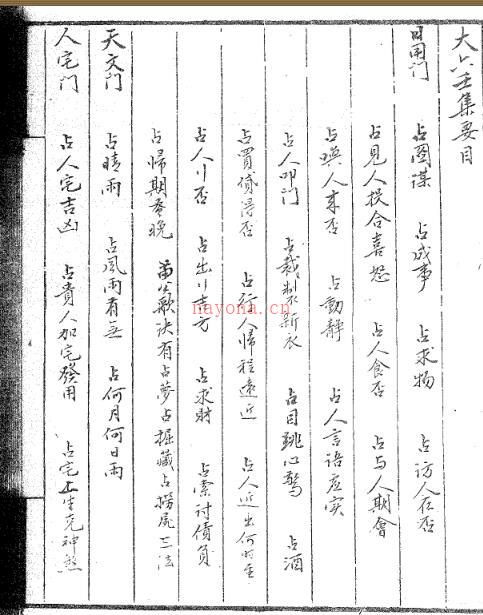 大六壬集要目
日用门　占图谋　占成事　占求物　占访人在否
占見人投合喜怒　占人食否　占与人期會
占喚人来否　占動静　占人言語虚实
占人叩门　占裁製新衣　占目跳心驚　占酒
占買貸得否　占行人歸程遠近　占人近出何时至
占人行否　占出行吉方　占求財　占索討債負
占歸期蚤晚　苗公歌决有占夢占掘藏占撈屍三法
天文门　占晴雨　占風雨有無　占何月何日雨
人宅门　占人宅吉凶　占貴人加宅發用　占宅上生克神煞
nayona.cn